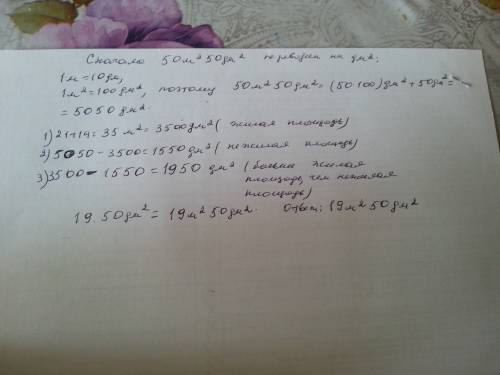 Сначала 50м² 50дм² переведем на дм²;
1м = 10дм,
1м² = 100дм², поэтому 50м² 50дм² = (50·100)дм² + 50дм² =
= 5050 дм².
1) 21+14 = 35 м² = 3500дм² ( жилая площадь)
2) 5050 - 3500 = 1550 дм² ( нежилая площадь)
3) 3500 - 1550 = 1950 дм² (больше жилая
площадь, чем нежилая
площадь)
19.50дм² = 19м² 50дм². Ответ: 19м² 50дм²